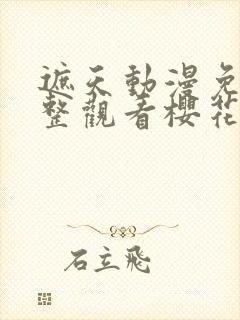 遮天動漫免
整觀看櫻花
石立飛